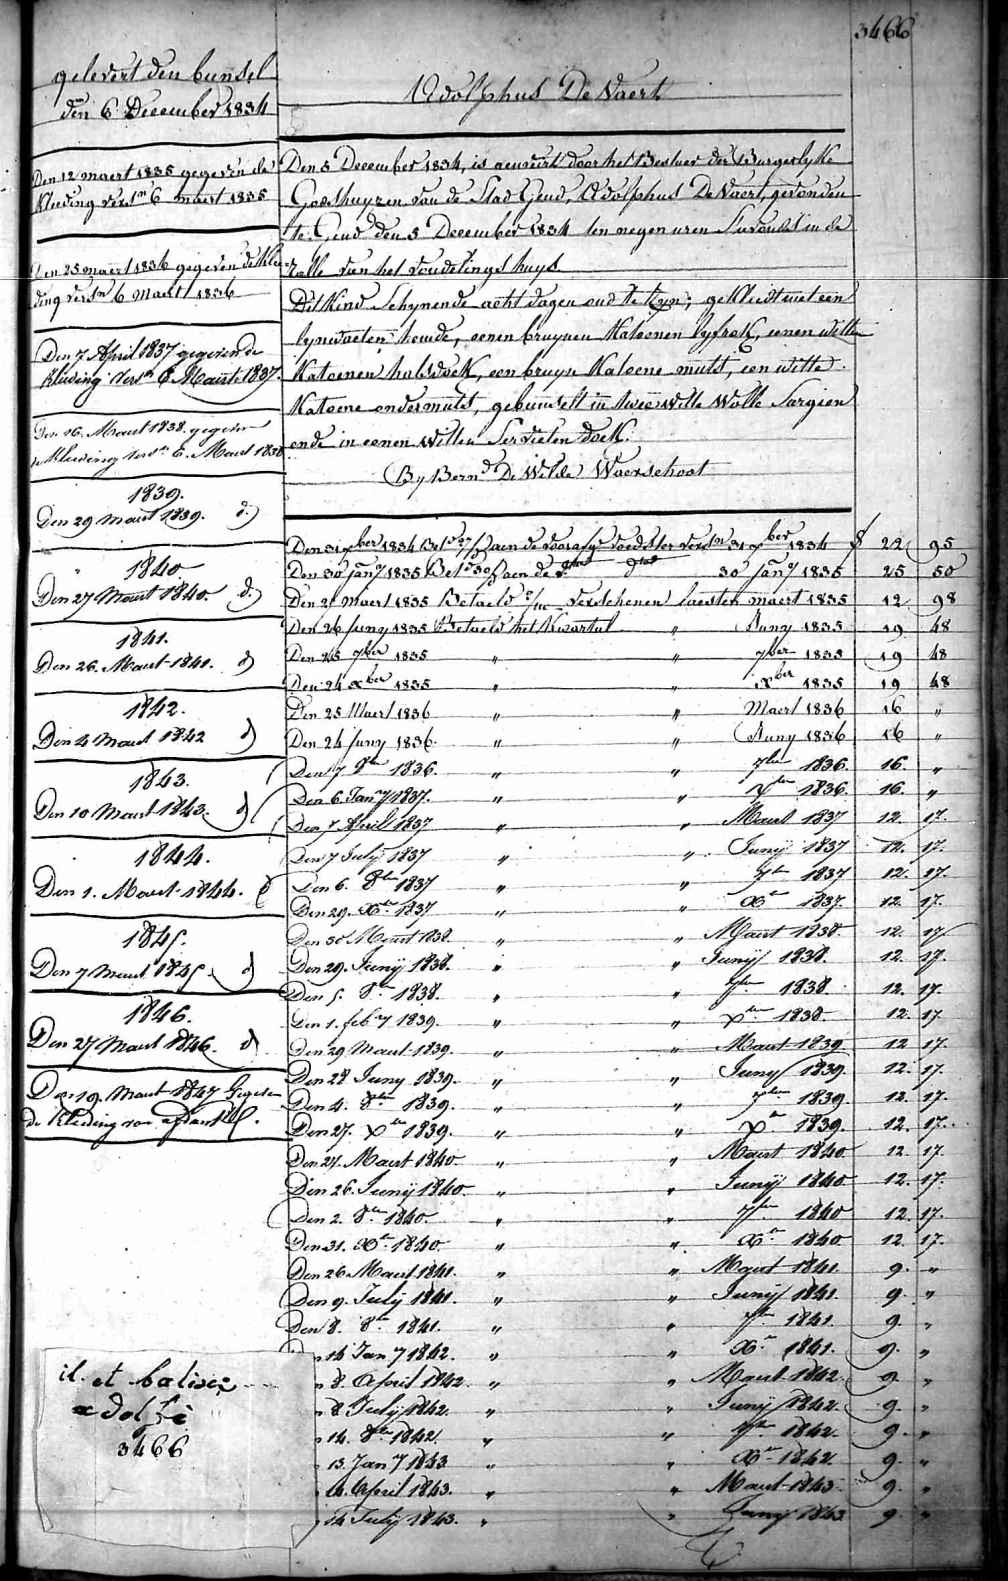 3466
gelevert den bunsel
den 6 December 1834
Den 12 maert 1835 gegeven de
Kleeding versn 6 maert 1835
Den 25 maert 1836 gegeven de klee-
ding versn 6 Maert 1836
Den 7 April 1837 gegeven de
kleeding versn 6 Maert 1837.
Den 16. Maert 1838. gegeven
de kleeding versn 6. Maert 1838
1839.
Den 29 maert 1839. d.)
1840.
Den 27 Maert 1840. d.)
1841.
Den 26. Maert 1841. d)
1842.
Den 4 Maert 1842 d)
1843.
Den 10 Maert 1843. d)
1844.
Den 1. Maert 1844. d
1845.
Den 7 Maert 1845. d)
1846.
Den 27 Maert 1846. d)
Den 19. Maert 1847 Gegeven
de Kleeding van
il et batisé
adolfe
3466
Adolphus De Naert
Den 5 December 1834, is aenveirt door het Bestuer der Burgerlyke
Godshuyzen van de Stad Gend, Adolphus De Naert, gevonden
te Gend den 5 December 1834 ten negen uren s'avonds in de
rolle van het vondelings huys
Dit Kind Schynende acht dagen oud te zyn; gekleedt met een
lynwaeten hemde, eenen bruynen Katoenen lyfrok, eenen witten
Katoenen halsdoek, een bruyn Katoene muts, een witte
Katoene ondermuts, gebunselt in twee witte Wolle Sargien
ende in eenen witten Servieten doek.
(By Bernd De Wilde Waerschoot
Den 31 xber 1834 Bet aen de voorsz voedster versn 31 xber 1834 f 22 95
Den 30 Jany 1835 Bet aen de 30 Jany 1835 25 50
Den 21 maert 1835 Betaeld verschenen laesten maert 1835 12 98
Den 26 Juny 1835 Betaeld het Kwartal " Juny 1835 19 48
Den 25 7ber 1835 " " 7ber 1835 19 48
Den 24 xber 1835 " " xber 1835 19 48
Den 25 Maert 1836 " " Maert 1836 16 "
Den 24 Juny 1836. " " Juny 1836 16 "
Den 7 8bre 1836. " " 7bre 1836. 16. "
Den 6. Jany 1837. " " xbre 1836. 16. "
Den 7 April 1837 " " Maert 1837 12. 17.
Den 7 July 1837 " " Junij 1837 12. 17.
Den 6. 8bre 1837 " " 7bre 1837 12. 17.
Den 29. Xbre 1837 " " Xbre 1837. 12. 17.
Den 30 Maert 1838. " " Maert 1838. 12. 17
Den 29. Junij 1838. " " Junij 1838. 12. 17.
Den 5. 8bre 1838. " " 7bre 1838. 12. 17.
Den 1. feby 1839. " " xbre 1838. 12. 17
Den 29 Maert 1839. " " Maert 1839 12 17.
Den 28 Juny 1839. " " Juny 1839. 12. 17.
Den 4. 8bre 1839. " " 7bre 1839. 12. 17.
Den 27. Xbre 1839. " " Xbre 1839. 12. 17.
Den 27. Maert 1840. " " Maert 1840 12. 17.
Den 26. Junij 1840. " " Junij 1840 12. 17.
Den 2. 8bre 1840. " " 7bre 1840 12. 17.
Den 31. Xbre 1840. " " Xbre 1840 12. 17.
Den 26 Maert 1841. " " Maert 1841. 9. "
Den 9. July 1841. " " Junij 1841. 9. "
Den 8. 8bre 1841. " " 7bre 1841. 9. "
14 Jany 1842. " " Xbre 1841. 9. "
8. April 1842. " " Maert 1842. 9. "
8 July 1842. " " Junij 1842. 9. "
14. 8bre 1842. " " 7bre 1842. 9. "
13. Jany 1843 " " Xbre 1842. 9. "
14. April 1843. " " Maert 1843. 9. "
14 July 1843. " " Juny 1843 9. "